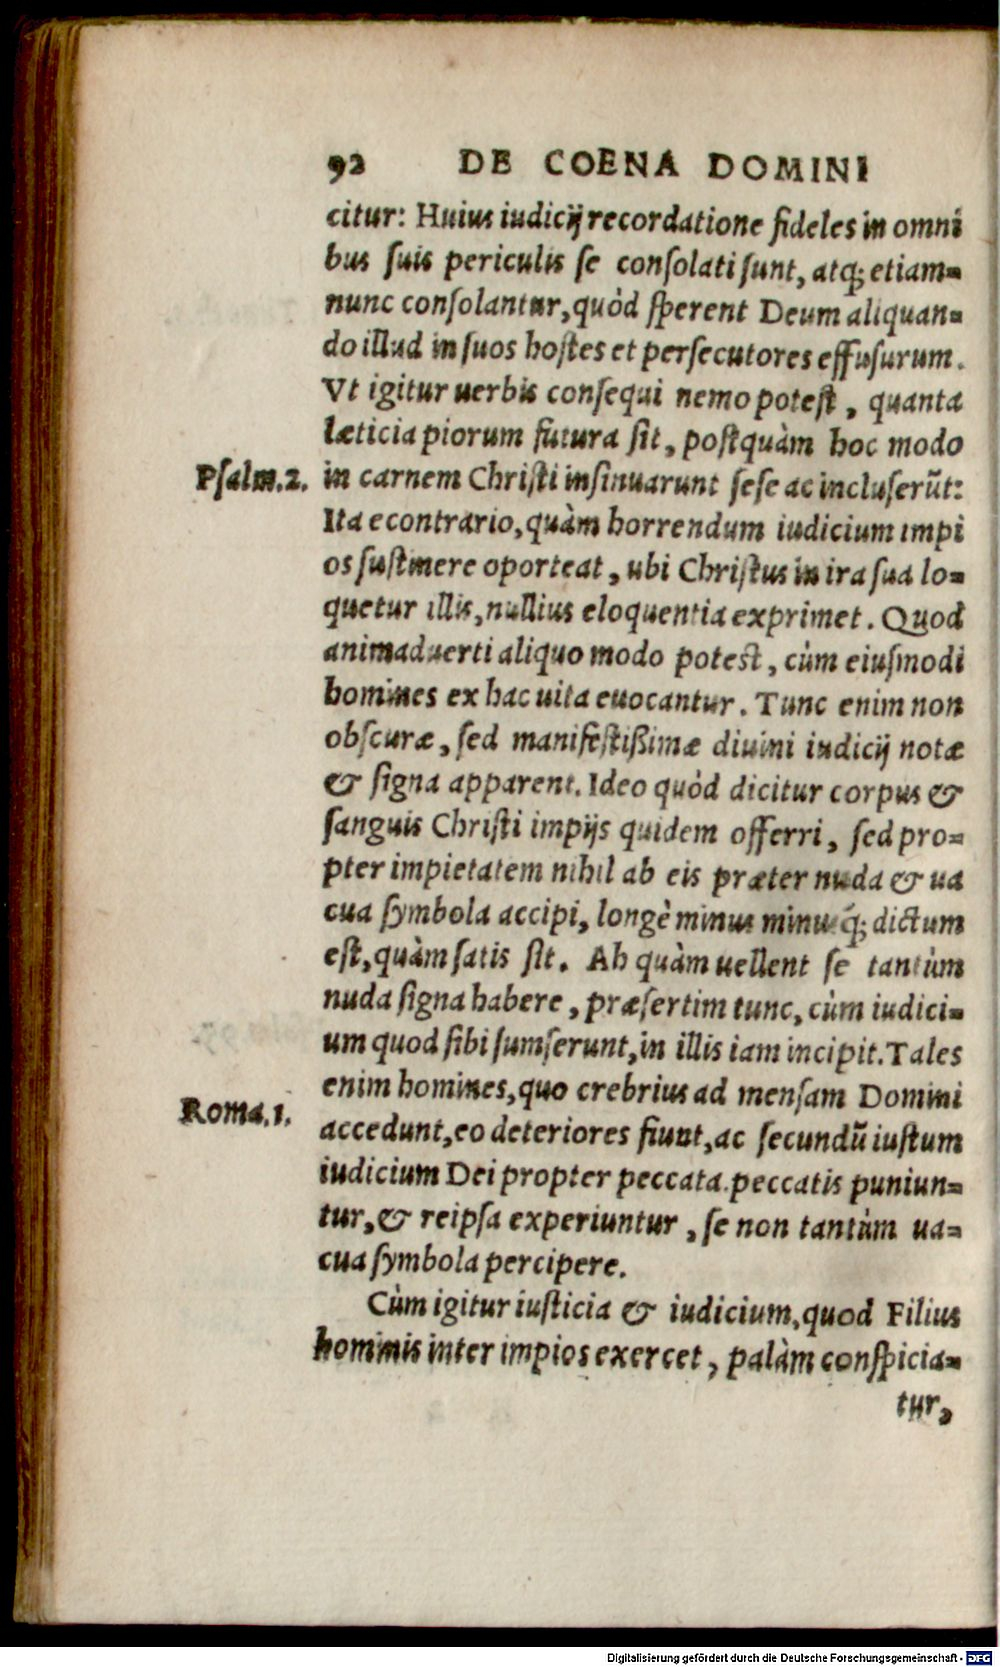 92 DE COENA DOMINI
citur: Huius iudicij recordatione fideles in omni
bus suis periculis se consolati sunt, atq; etiam-
nunc consolantur, quòd sperent Deum aliquan-
do illud in suos hostes et persecutores effusurum.
Vt igitur uerbis consequi nemo potest, quanta
læticia piorum futura sit, postquàm hoc modo
Psalm. 2. in carnem Christi insinuarunt sese ac incluserũt:
Ita econtrario, quàm horrendum iudicium impi
os sustinere oporteat, ubi Christus in ira sua lo-
quetur illis, nullius eloquentia exprimet. Quod
animaduerti aliquo modo potest, cùm eiusmodi
homines ex hac uita euocantur. Tunc enim non
obscuræ, sed manifestißimæ diuini iudicij notæ
& signa apparent. Ideo quòd dicitur corpus &
sanguis Christi impijs quidem offerri, sed pro-
pter impietatem nihil ab eis præter nuda & ua
cua symbola accipi, longè minus minusq́; dictum
est, quàm satis sit. Ah quàm uellent se tantùm
nuda signa habere, præsertim tunc, cùm iudici-
um quod sibi sumserunt, in illis iam incipit. Tales
enim homines, quo crebrius ad mensam Domini
Roma. 1. accedunt, eo deteriores fiunt, ac secundũ iustum
iudicium Dei propter peccata peccatis puniun-
tur, & reipsa experiuntur, se non tantùm ua-
cua symbola percipere.
Cùm igitur iusticia & iudicium, quod Filius
hominis inter impios exercet, palàm conspicia-
tur,
Digitalisierung gefördert durch die Deutsche Forschungsgemeinschaft - DFG